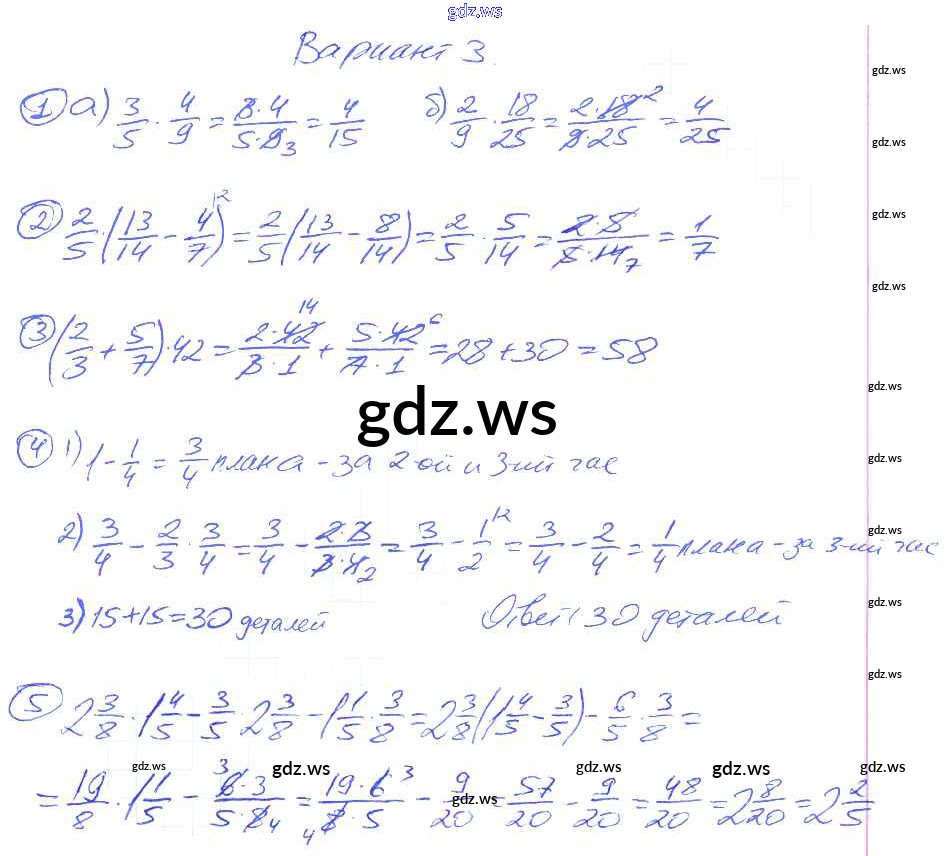 gdz.ws
Вариант 3.
gdz.ws
① а) 3/5 · 4/9 = 3·4/5·9 3 = 4/15 б) 2/9 · 18/25 = 2·18 2/9·25 = 4/25
gdz.ws
② 2/5 · (13/14 - 4/7 |2) = 2/5 (13/14 - 8/14) = 2/5 · 5/14 = 2·5/5·14 7 = 1/7
gdz.ws
gdz.ws
③ (2/3 + 5/7) · 42 = 2·42 14/3·1 + 5·42 6/7·1 = 28 + 30 = 58
gdz.ws
gdz.ws
④ 1) 1 - 1/4 = 3/4 плана - за 2-ой и 3-ий час
gdz.ws
gdz.ws
2) 3/4 - 2/3 · 3/4 = 3/4 - 2·3/3·4 2 = 3/4 - 1/2 |2 = 3/4 - 2/4 = 1/4 плана - за 3-ий час
gdz.ws
3) 15+15=30 деталей Ответ: 30 деталей
gdz.ws
⑤ 2 3/8 · 1 4/5 - 3/5 · 2 3/8 - 1 1/5 · 3/8 = 2 3/8 (1 4/5 - 3/5) - 6/5 · 3/8 =
gdz.ws gdz.ws gdz.ws gdz.ws gdz.ws
= 19/8 · 1 1/5 - 3 6·3/5·8 4 = 19·6 3/4 8·5 - 9/20 = 57/20 - 9/20 = 48/20 = 2 8/20 = 2 2/5
gdz.ws
gdz.ws